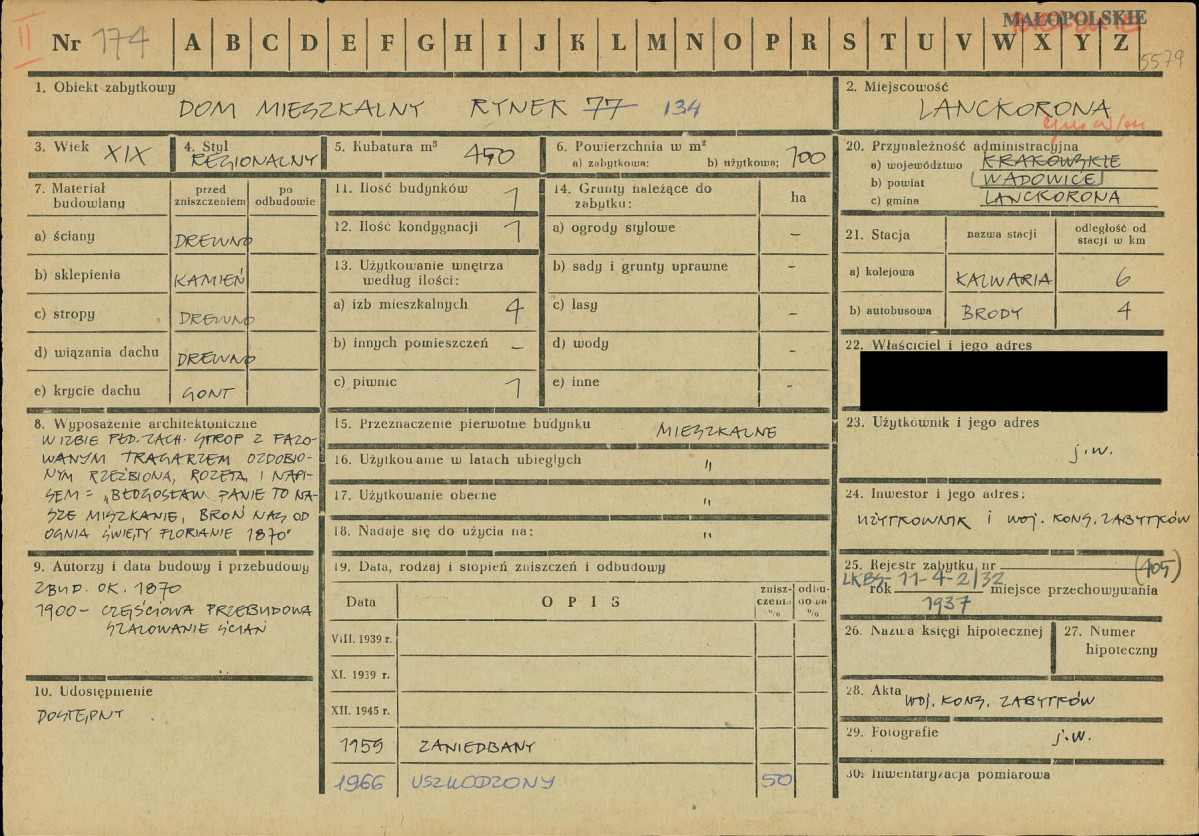 II
Nr 174 A B C D E F G H I J K L M N O P R S T U V W X Y Z
MAŁOPOLSKIE
5579
1. Obiekt zabytkowy
DOM MIESZKALNY RYNEK 77 134
2. Miejscowość
LANCKORONA
3. Wiek XIX
4. Styl
REGIONALNY
5. Kubatura m³ 450
6. Powierzchnia w m²
a) zabytkowa: b) użytkowa: 100
20. Przynależność administracyjna
a) województwo KRAKOWSKIE
b) powiat WADOWICE
c) gmina LANCKORONA
7. Materiał budowlany
przed zniszczeniem
po odbudowie
a) ściany DREWNO
b) sklepienia KAMIEŃ
c) stropy DREWNO
d) wiązania dachu DREWNO
e) krycie dachu GONT
11. Ilość budynków 1
12. Ilość kondygnacji 1
13. Użytkowanie wnętrza
według ilości:
a) izb mieszkalnych 4
b) innych pomieszczeń –
c) piwnic 1
14. Grunty należące do
zabytku: ha
a) ogrody stylowe –
b) sady i grunty uprawne –
c) lasy –
d) wody –
e) inne –
21. Stacja nazwa stacji odległość od stacji w km
a) kolejowa KALWARIA 6
b) autobusowa BRODY 4
22. Właściciel i jego adres
8. Wyposażenie architektoniczne
W IZBIE PŁD. ZACH. STROP Z FAZO-
WANYM TRAGARZEM OZDOBIO-
NYM RZEŹBIONĄ, ROZETĄ, I NAPI-
SEM = „BŁOGOSŁAW PANIE TO NA-
SZE MISZKANIE, BROŃ NAS OD
OGNIA ŚWIĘTY FLORIANIE 1870"
15. Przeznaczenie pierwotne budynku MIESZKALNE
16. Użytkowanie w latach ubiegłych "
17. Użytkowanie obecne "
18. Nadaje się do użycia na: "
23. Użytkownik i jego adres
j.w.
24. Inwestor i jego adres:
UŻYTKOWNIK i WOJ. KONS. ZABYTKÓW
9. Autorzy i data budowy i przebudowy
ZBUD. OK. 1870
1900 – CZĘŚCIOWA PRZEBUDOWA
SZALOWANIE ŚCIAN
19. Data, rodzaj i stopień zniszczeń i odbudowy
Data OPIS zniszczenia % odbudowa %
VIII. 1939 r.
XI. 1939 r.
XII. 1945 r.
1959 ZANIEDBANY
1966 USZKODZONY 50
25. Rejestr zabytku nr (405)
LKBS-11-4-2/32
rok 1937 miejsce przechowywania
26. Nazwa księgi hipotecznej
27. Numer hipoteczny
10. Udostępnienie
DOSTĘPNY
28. Akta WOJ. KONS. ZABYTKÓW
29. Fotografie j.w.
30. Inwentaryzacja pomiarowa